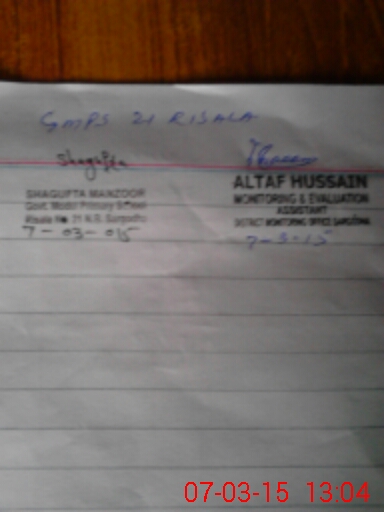 GMPS 21 RISALA
Shagufta
SHAGUFTA MANZOOR
Govt. Model Primary School
Risala No 21 N.B. Sargodha
7-03-015
ALTAF HUSSAIN
MONITORING & EVALUATION
ASSISTANT
DISTRICT MONITORING OFFICE SARGODHA
7-3-15
07-03-15 13:04